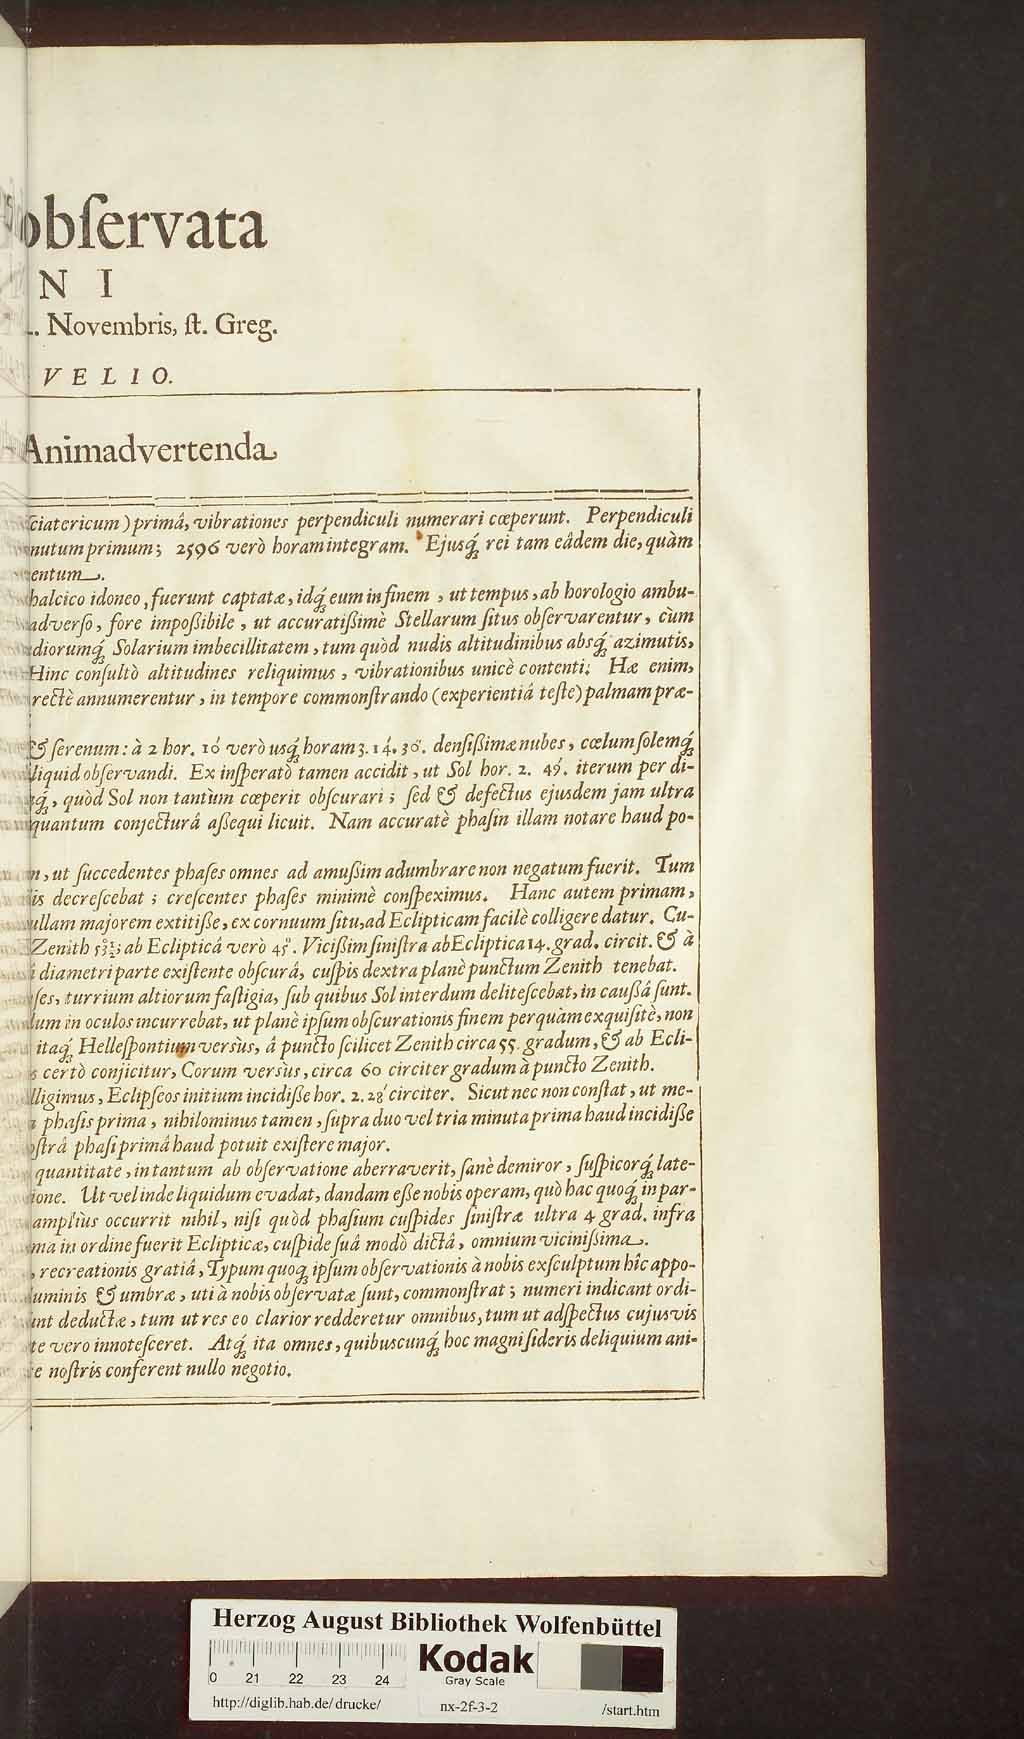 observata
N I
Novembris, ſt. Greg.
V E L I O.
Animadvertenda
ſciatericum) primâ, vibrationes perpendiculi numerari cœperunt. Perpendiculi
nutum primum; 2596 verò horam integram. Ejusq́; rei tam eâdem die, quàm
entum.
halcico idoneo, fuerunt captatæ, idq́; eum in finem, ut tempus, ab horologio ambu-
adverſo, fore impoßibile, ut accuratißimè Stellarum ſitus obſervarentur, cùm
diorumq́; Solarium imbecillitatem, tum quòd nudis altitudinibus absq́; azimutis,
Hinc conſultò altitudines reliquimus, vibrationibus unicè contenti. Hæ enim,
rectè annumerentur, in tempore commonſtrando (experientiâ teſte) palmam præ-
& ſerenum: à 2 hor. 10′ verò usq́; horam 3. 14′. 30″. denſißimæ nubes, cœlum ſolemq́;
liquid obſervandi. Ex inſperatò tamen accidit, ut Sol hor. 2. 49′. iterum per di-
q́;, quòd Sol non tantùm cœperit obſcurari; ſed & defectus ejusdem jam ultra
quantum conjecturâ aßequi licuit. Nam accuratè phaſin illam notare haud po-
n, ut ſuccedentes phaſes omnes ad amußim adumbrare non negatum fuerit. Tum
is decreſcebat; creſcentes phaſes minimè conſpeximus. Hanc autem primam,
ullam majorem extitiße, ex cornuum ſitu, ad Eclipticam facilè colligere datur. Cu-
Zenith 53½°; ab Eclipticâ verò 45°. Vicißim ſiniſtra ab Ecliptica 14. grad. circit. & à
i diametri parte exiſtente obſcurâ, cuſpis dextra planè punctum Zenith tenebat.
ſes, turrium altiorum faſtigia, ſub quibus Sol interdum deliteſcebat, in cauſsâ ſunt.
dum in oculos incurrebat, ut planè ipſum obſcurationis finem perquàm exquiſitè, non
itaq́; Helleſpontium verſùs, â puncto ſcilicet Zenith circa 55. gradum, & ab Ecli-
s certò conjicitur, Corum verſùs, circa 60 circiter gradum à puncto Zenith.
lligimus, Eclipſeos initium incidiße hor. 2. 28′ circiter. Sicut nec non conſtat, ut me-
phaſis prima, nihilominus tamen, ſupra duo vel tria minuta prima haud incidiße
oſtrâ phaſi primâ haud potuit exiſtere major.
quantitate, in tantum ab obſervatione aberraverit, ſanè demiror, ſuſpicorq́; late-
ione. Ut vel inde liquidum evadat, dandam eße nobis operam, quò hac quoq́; in par-
ampliùs occurrit nihil, niſi quòd phaſium cuſpides ſiniſtræ ultra 4 grad. infra
ma in ordine fuerit Eclipticæ, cuſpide ſuâ modò dictâ, omnium vicinißima.
, recreationis gratiâ, Typum quoq́; ipſum obſervationis à nobis exſculptum hîc appo-
luminis & umbræ, uti à nobis obſervatæ ſunt, commonſtrat; numeri indicant ordi-
unt deductæ, tum ut res eo clarior redderetur omnibus, tum ut adſpectus cujusvis
te vero innoteſceret. Atq́; ita omnes, quibuscunq́; hoc magni ſideris deliquium ani-
e noſtris conferent nullo negotio.
Herzog August Bibliothek Wolfenbüttel
0 21 22 23 24
Kodak
Gray Scale
http://diglib.hab.de/drucke/ nx-2f-3-2 /start.htm